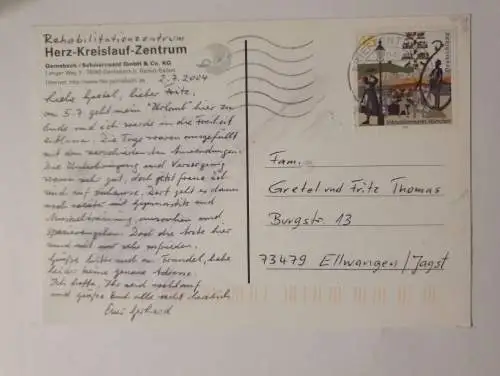 Rehabilitationszentrum
Herz-Kreislauf-Zentrum
Gernsbach / Schwarzwald GmbH & Co. KG
Langer Weg 3 · 76593 Gernsbach b. Baden-Baden
Internet: http://www.hkz-gernsbach.de
2.7.2004
Liebe Gretel, lieber Fritz,
am 5.7. geht mein "Urlaub" hier zu
Ende und ich werde in die Freiheit
entlassen. Die Tage waren ausgefüllt
mit den verschiedensten Anwendungen.
Die Unterbringung und Versorgung
waren sehr gut, doch jetzt freue ich
mich auf zuhause. Dort geht es dann
noch weiter mit Gymnastik und
Muskeltraining, ausruhen und
spazierengehen. Doch die Ärzte hier
sind mit mir sehr zufrieden.
Grüße bitte auch an Traudel, habe
leider keine genaue Adresse.
Ich hoffe, Ihr seid wohlauf
und grüße Euch alle recht herzlich
Euer Gerhard
Fam.
Gretel und Fritz Thomas
Burgstr. 13
73479 Ellwangen / Jagst